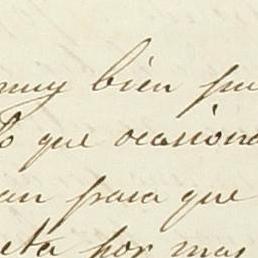 muy bien pu
lo que ocasiona
an para que
eta por mas